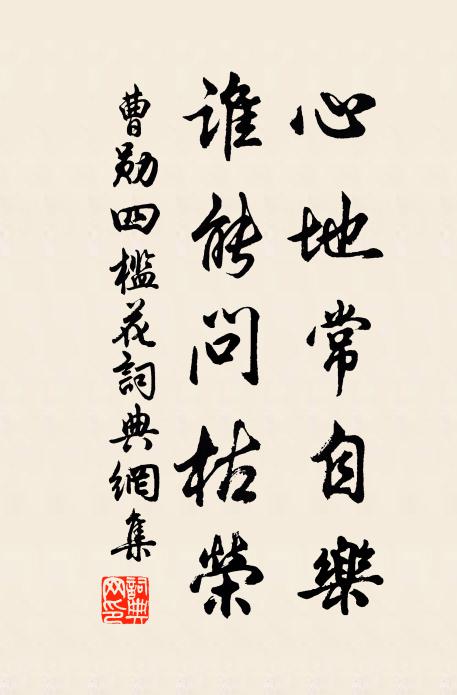 心地常自樂
誰能問枯榮
曹勛四檻花詞典網集
詞典網印